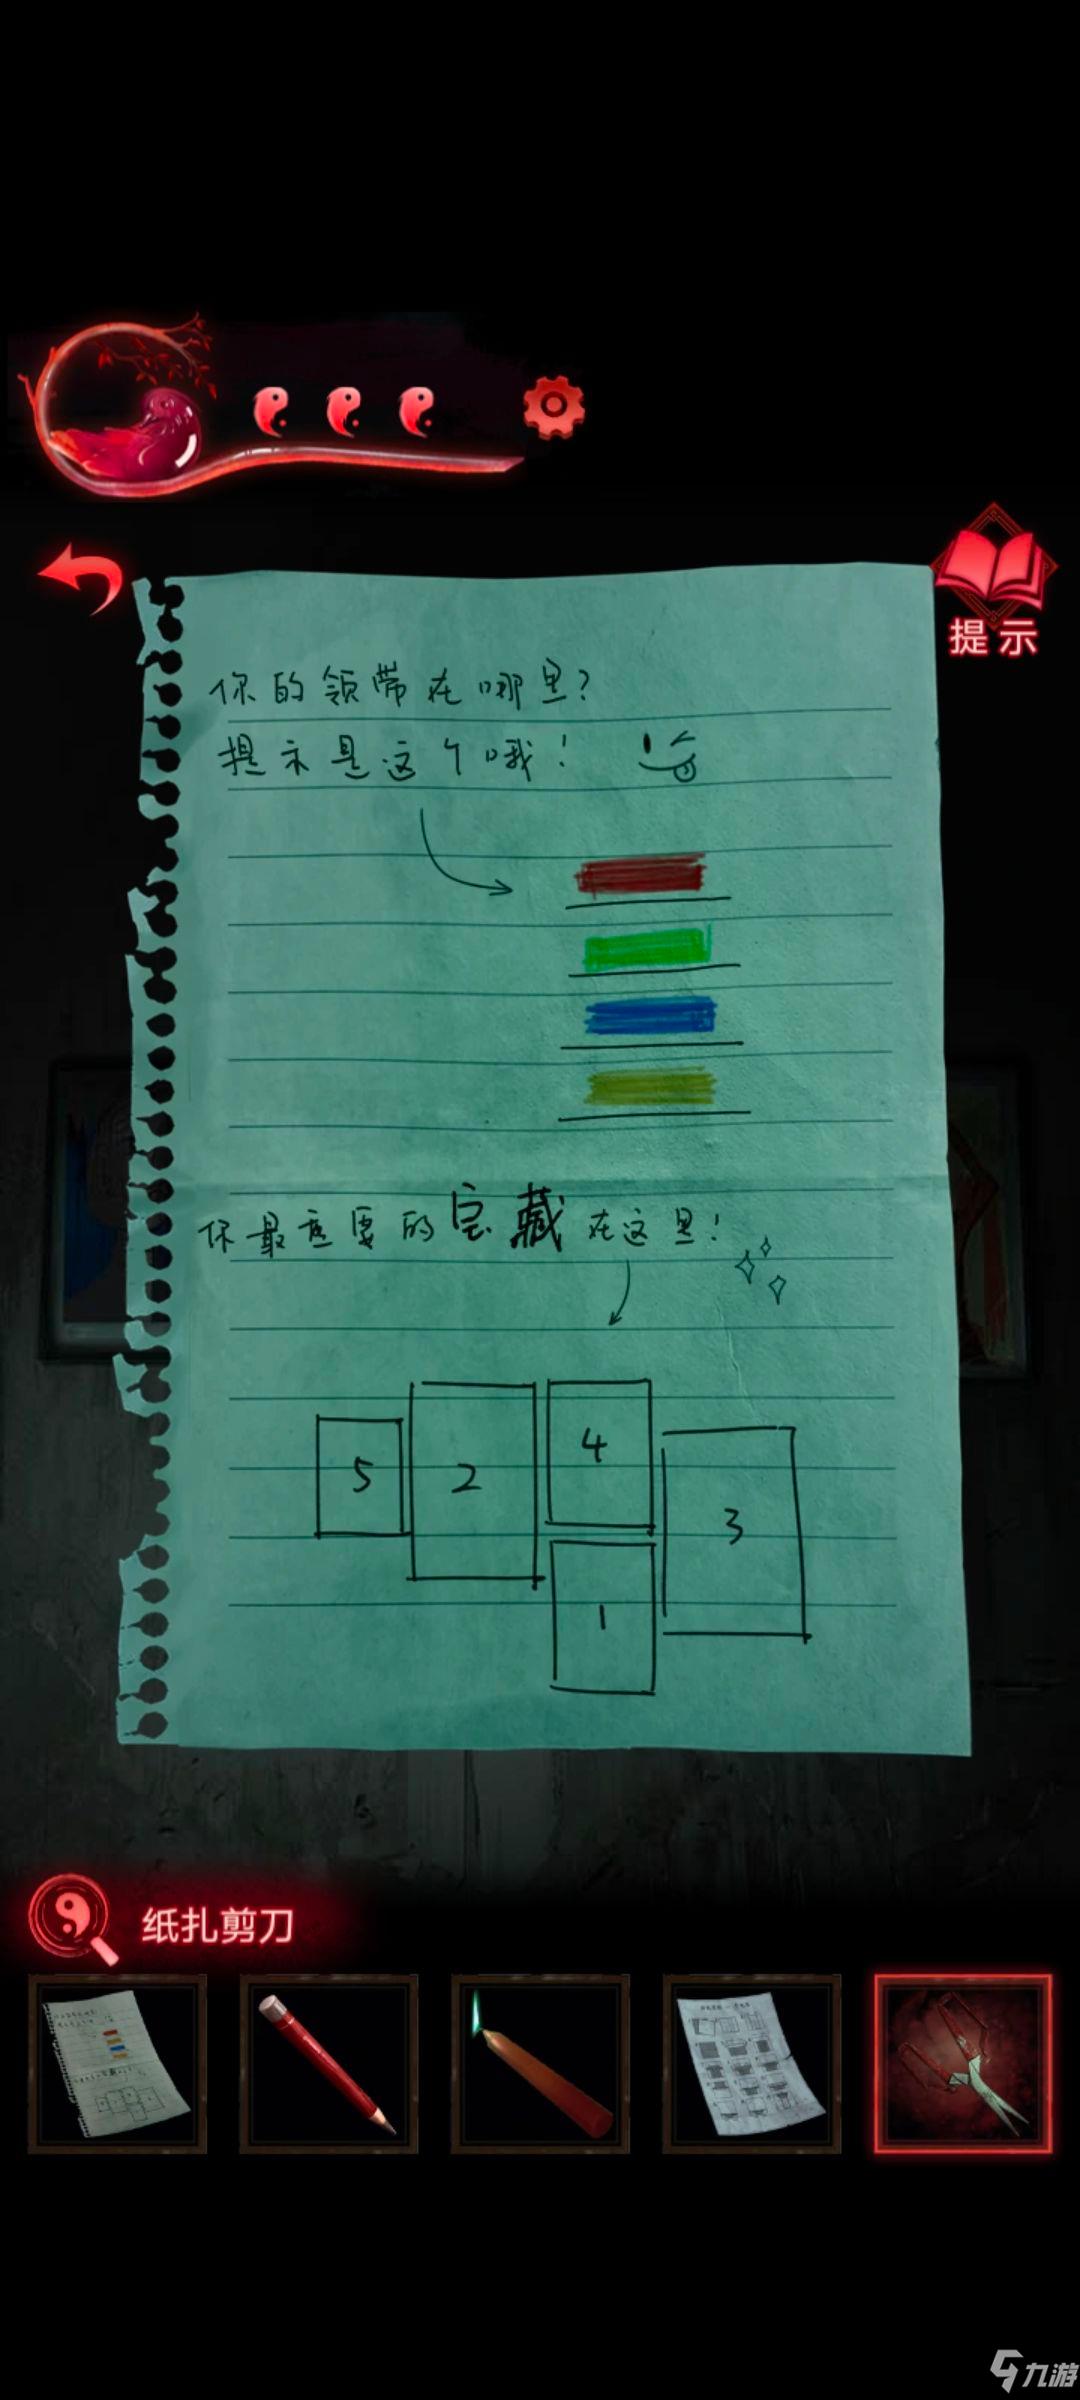 提示
你的领带在哪里?
提示是这个哦!
你最重要的宝藏在这里!
5
2
4
3
1
纸扎剪刀
九游